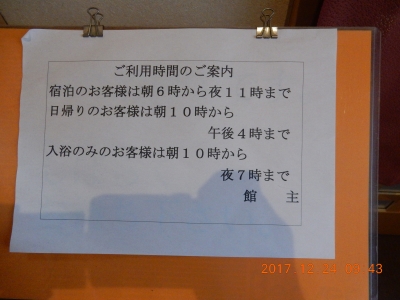 ご利用時間のご案内
宿泊のお客様は朝６時から夜１１時まで
日帰りのお客様は朝１０時から
午後４時まで
入浴のみのお客様は朝１０時から
夜７時まで
館　主